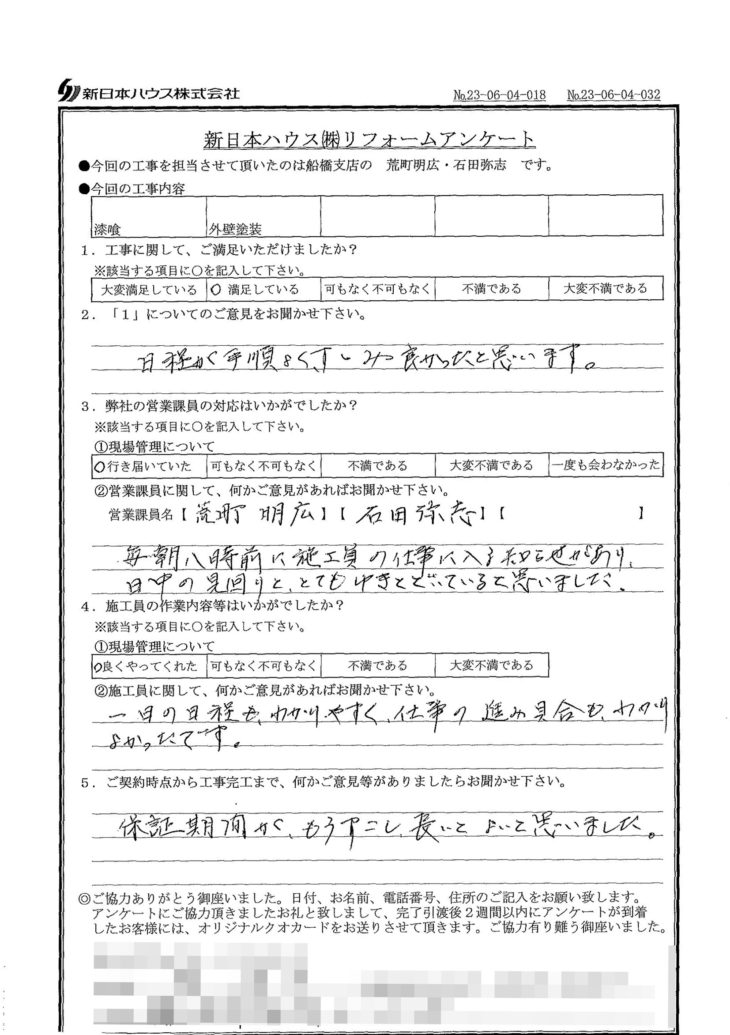 新日本ハウス株式会社 №23-06-04-018 №23-06-04-032
新日本ハウス㈱リフォームアンケート
●今回の工事を担当させて頂いたのは船橋支店の 荒町明広・石田弥志 です。
●今回の工事内容
漆喰 外壁塗装
1．工事に関して、ご満足いただけましたか？
※該当する項目に○を記入して下さい。
大変満足している ○ 満足している 可もなく不可もなく 不満である 大変不満である
2．「1」についてのご意見をお聞かせ下さい。
日程が手順よく、すすみ 良かったと思います。
3．弊社の営業課員の対応はいかがでしたか？
※該当する項目に○を記入して下さい。
①現場管理について
○行き届いていた 可もなく不可もなく 不満である 大変不満である 一度も会わなかった
②営業課員に関して、何かご意見があればお聞かせ下さい。
営業課員名【荒町 明広】【石田弥志】【 】
毎朝八時前に施工員の仕事に入る知らせがあり、
日中の見回りと、とてもゆきとどいていると思いました。
4．施工員の作業内容等はいかがでしたか？
※該当する項目に○を記入して下さい。
①現場管理について
○良くやってくれた 可もなく不可もなく 不満である 大変不満である
②施工員に関して、何かご意見があればお聞かせ下さい。
一日の日程も、わかりやすく、仕事の進み具合も、わかり
よかったです。
5．ご契約時点から工事完工まで、何かご意見等がありましたらお聞かせ下さい。
保証期間が、もうすこし、長いとよいと思いました。
◎ご協力ありがとう御座いました。日付、お名前、電話番号、住所のご記入をお願い致します。
アンケートにご協力頂きましたお礼と致しまして、完了引渡後２週間以内にアンケートが到着
したお客様には、オリジナルクオカードをお送りさせて頂きます。ご協力有り難う御座いました。